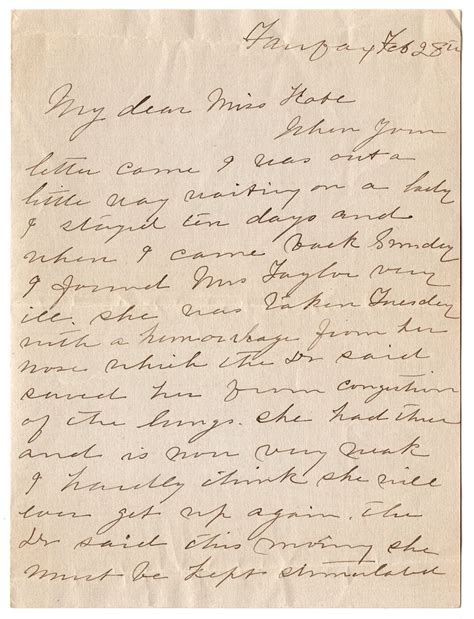 Fairfax Feb 28th
My dear Miss Kate
When Your
letter came I was out a
little way waiting on a lady
I stayed ten days and
when I came back Sunday
I found Mrs Taylor very
ill. she was taken Tuesday
with a hemourhage from her
nose which the Dr said
saved her from congestion
of the lungs. she had three
and is now very weak
I hardly think she will
ever get up again. the
Dr said this morning she
must be kept stimulated